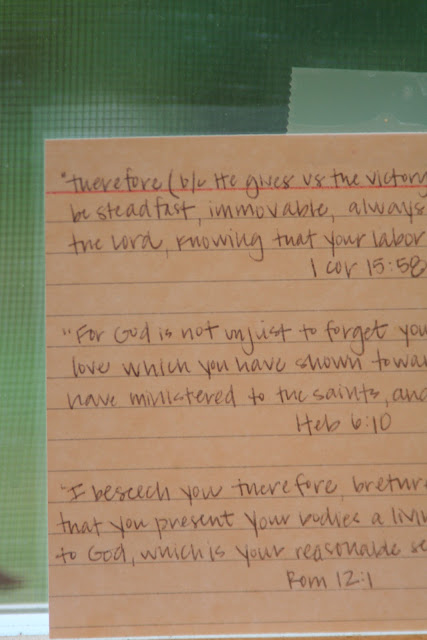 "therefore (b/c He gives us the victory
be steadfast, immovable, always
the Lord, knowing that your labor
1 Cor 15:58
"For God is not unjust to forget you
love which you have shown towar
have ministered to the saints, and
Heb 6:10
"I beseech you therefore, brethre
that you present your bodies a livin
to God, which is your reasonable se
Rom 12:1